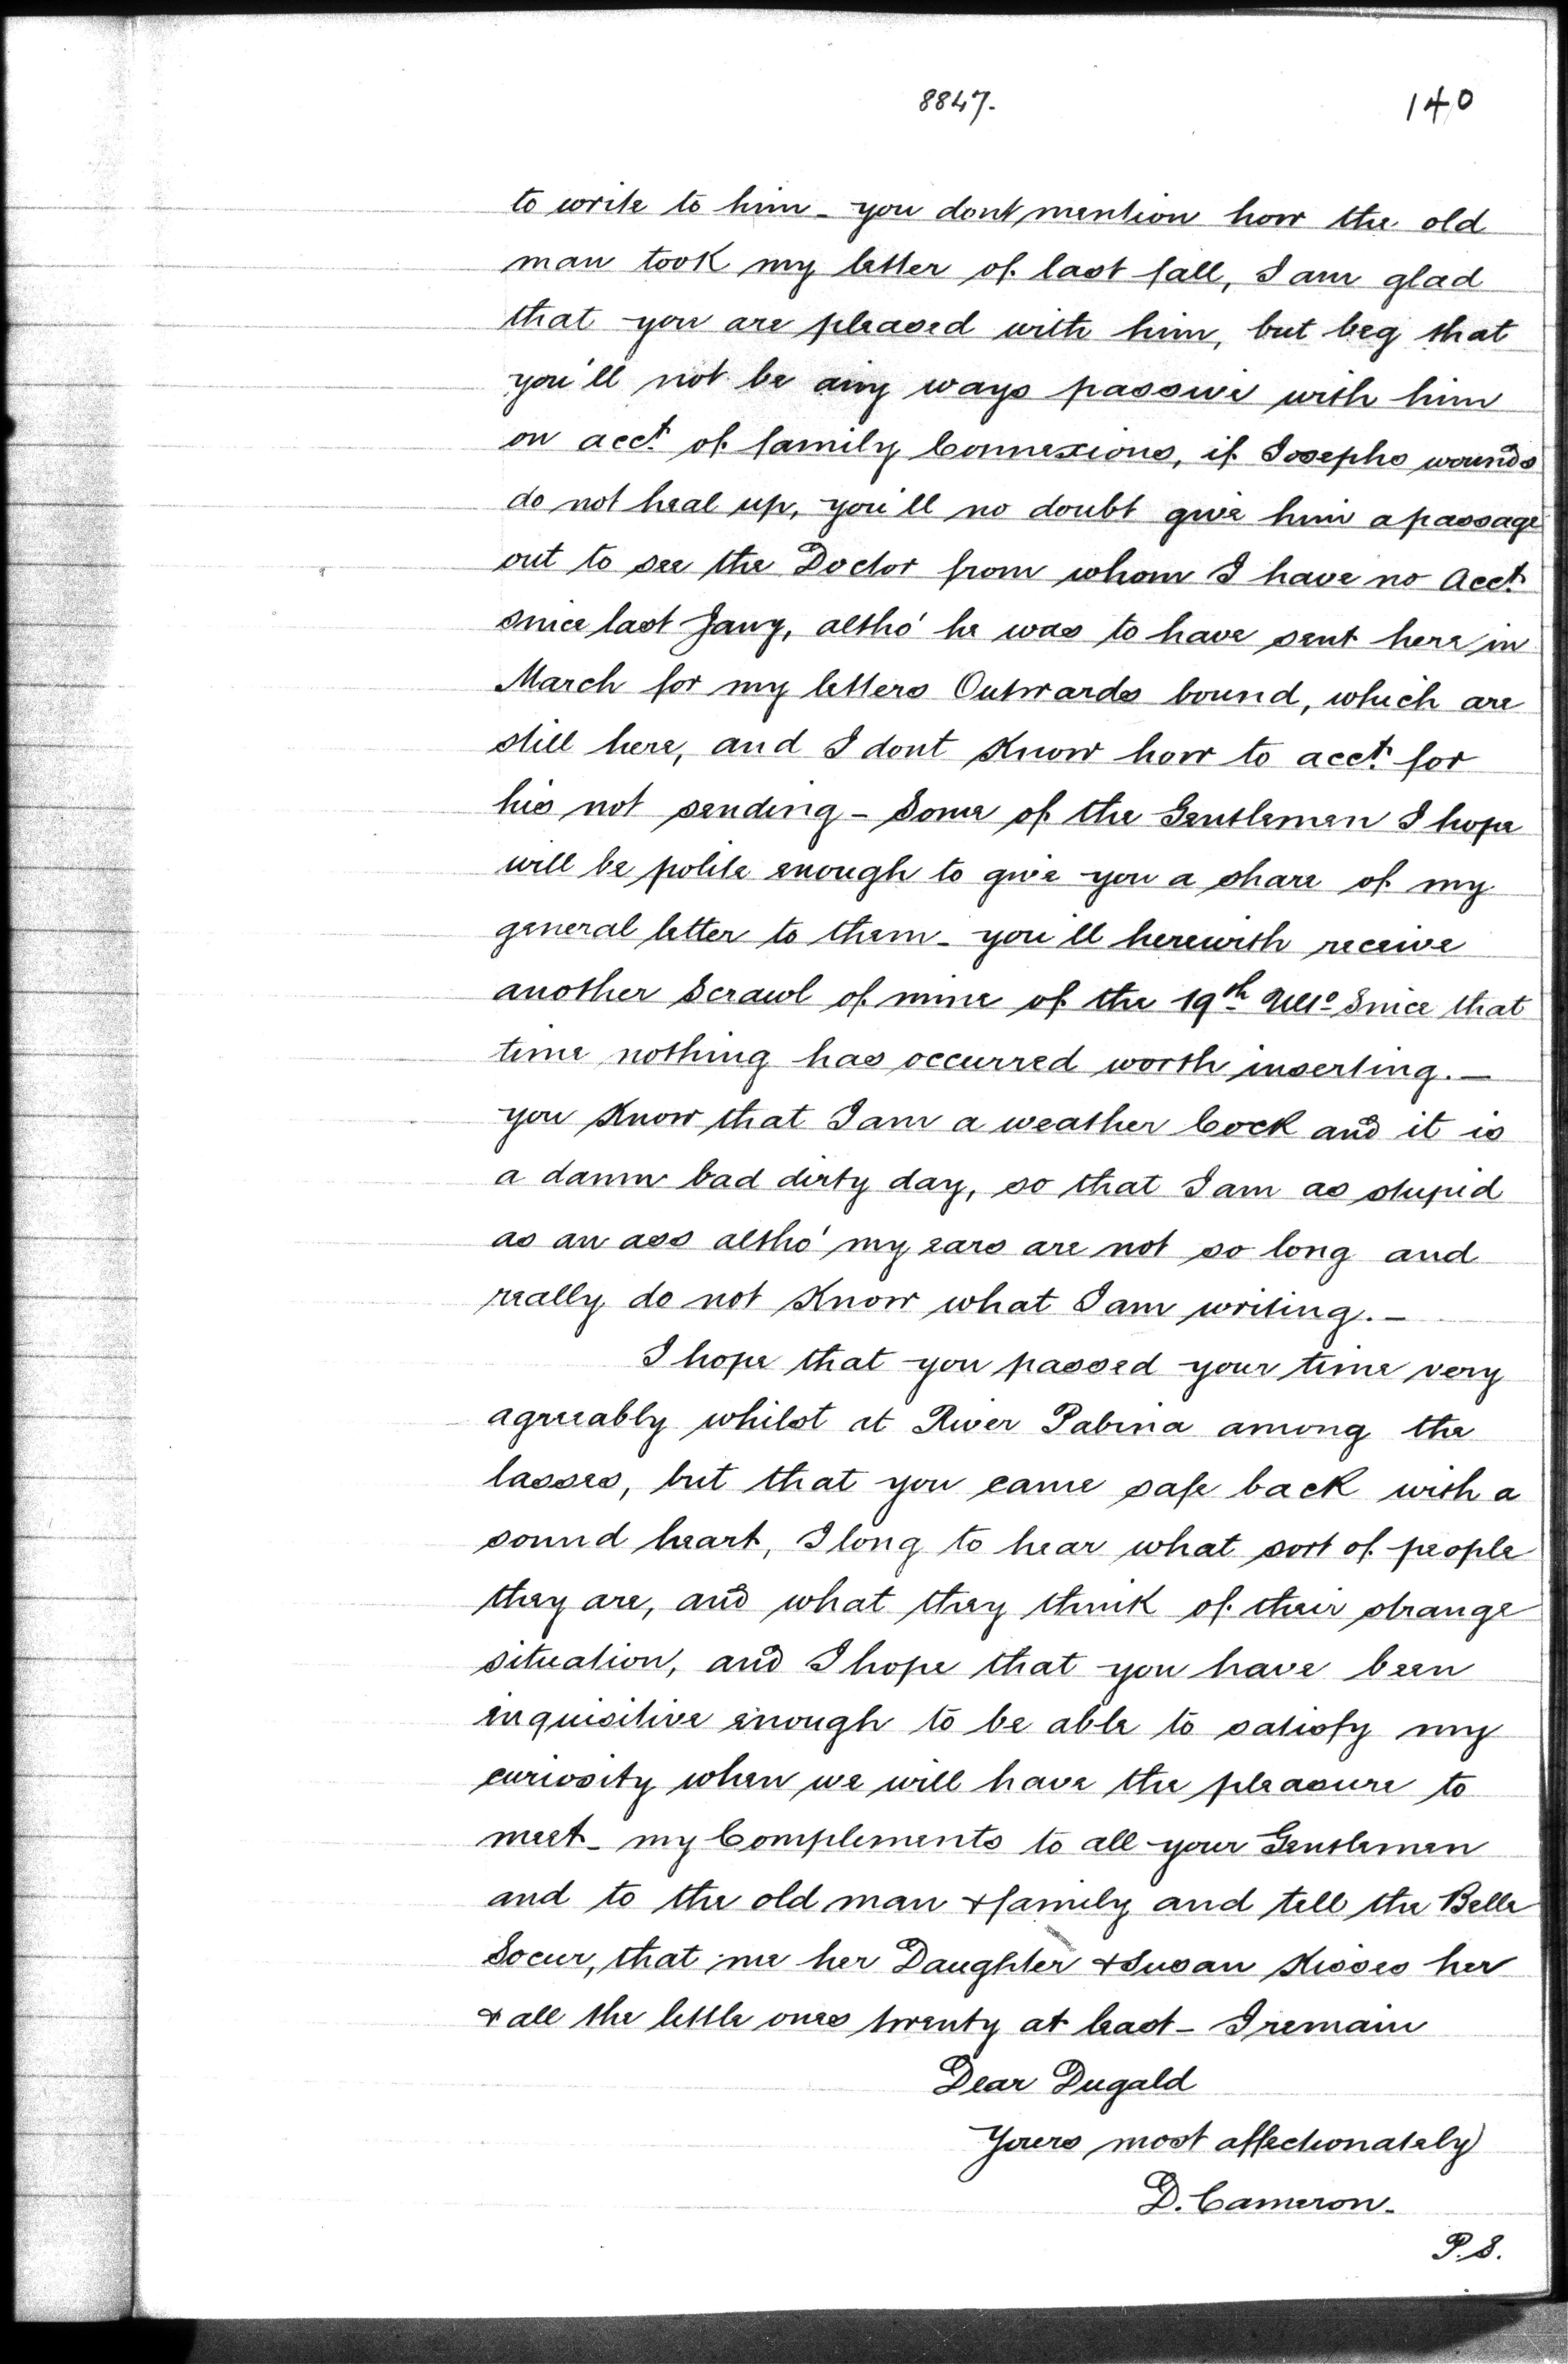 8847.
140
to write to him - you dont mention how the old
man took my letter of last fall, I am glad
that you are pleased with him, but beg that
you'll not be any ways passive with him
on acct. of family Connexions, if Josephs wounds
do not heal up, you'll no doubt give him a passage
out to see the Doctor from whom I have no Acct.
since last Jany, altho' he was to have sent here in
March for my letters Outwards bound, which are
still here, and I dont Know how to acct. for
his not sending - Some of the Gentlemen I hope
will be polite enough to give you a share of my
general letter to them - you'll herewith receive
another Scrawl of mine of the 19th Ulto. Since that
time nothing has occurred worth inserting. -
you Know that I am a weather Cock and it is
a damn bad dirty day, so that I am as stupid
as an ass altho' my ears are not so long and
really do not Know what I am writing. -
I hope that you passed your time very
agreeably whilst at River Pabina among the
lasses, but that you came safe back with a
sound heart, I long to hear what sort of people
they are, and what they think of their strange
situation, and I hope that you have been
inquisitive enough to be able to satisfy my
curiosity when we will have the pleasure to
meet - my Complements to all your Gentlemen
and to the old man & family and tell the Belle
Socur, that me her Daughter & Susan Kisses her
& all the little ones twenty at least - I remain
Dear Dugald
Yours most affectionately
D. Cameron.
P.S.